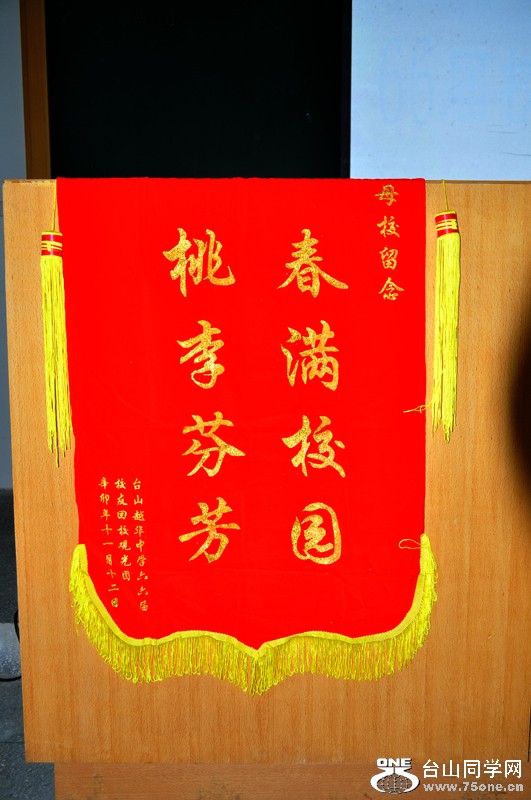 母校留念
春满校园
桃李芬芳
台山越华中学六六届
校友回校观光团
辛卯年十一月十二日
ONE
台山同学网
www.75one.cn